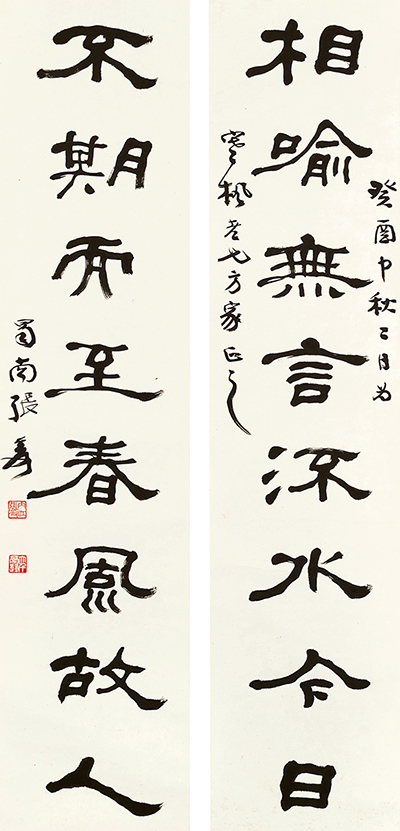 癸酉中秋二日为
相喻無言流水今日
寒楓老方家正之
不期而至春風故人
蜀南張